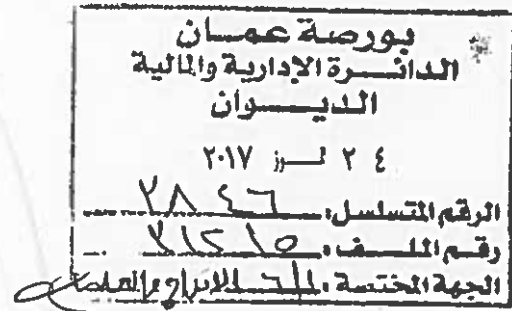 بورصة عمان
الدائرة الإدارية والمالية
الديوان
٢٤ تموز ٢٠١٧
الرقم المتسلسل: ٣٨٤٦
رقم الملف: ٣١٢١٥
الجهة المختصة: الإدراج والعمليات